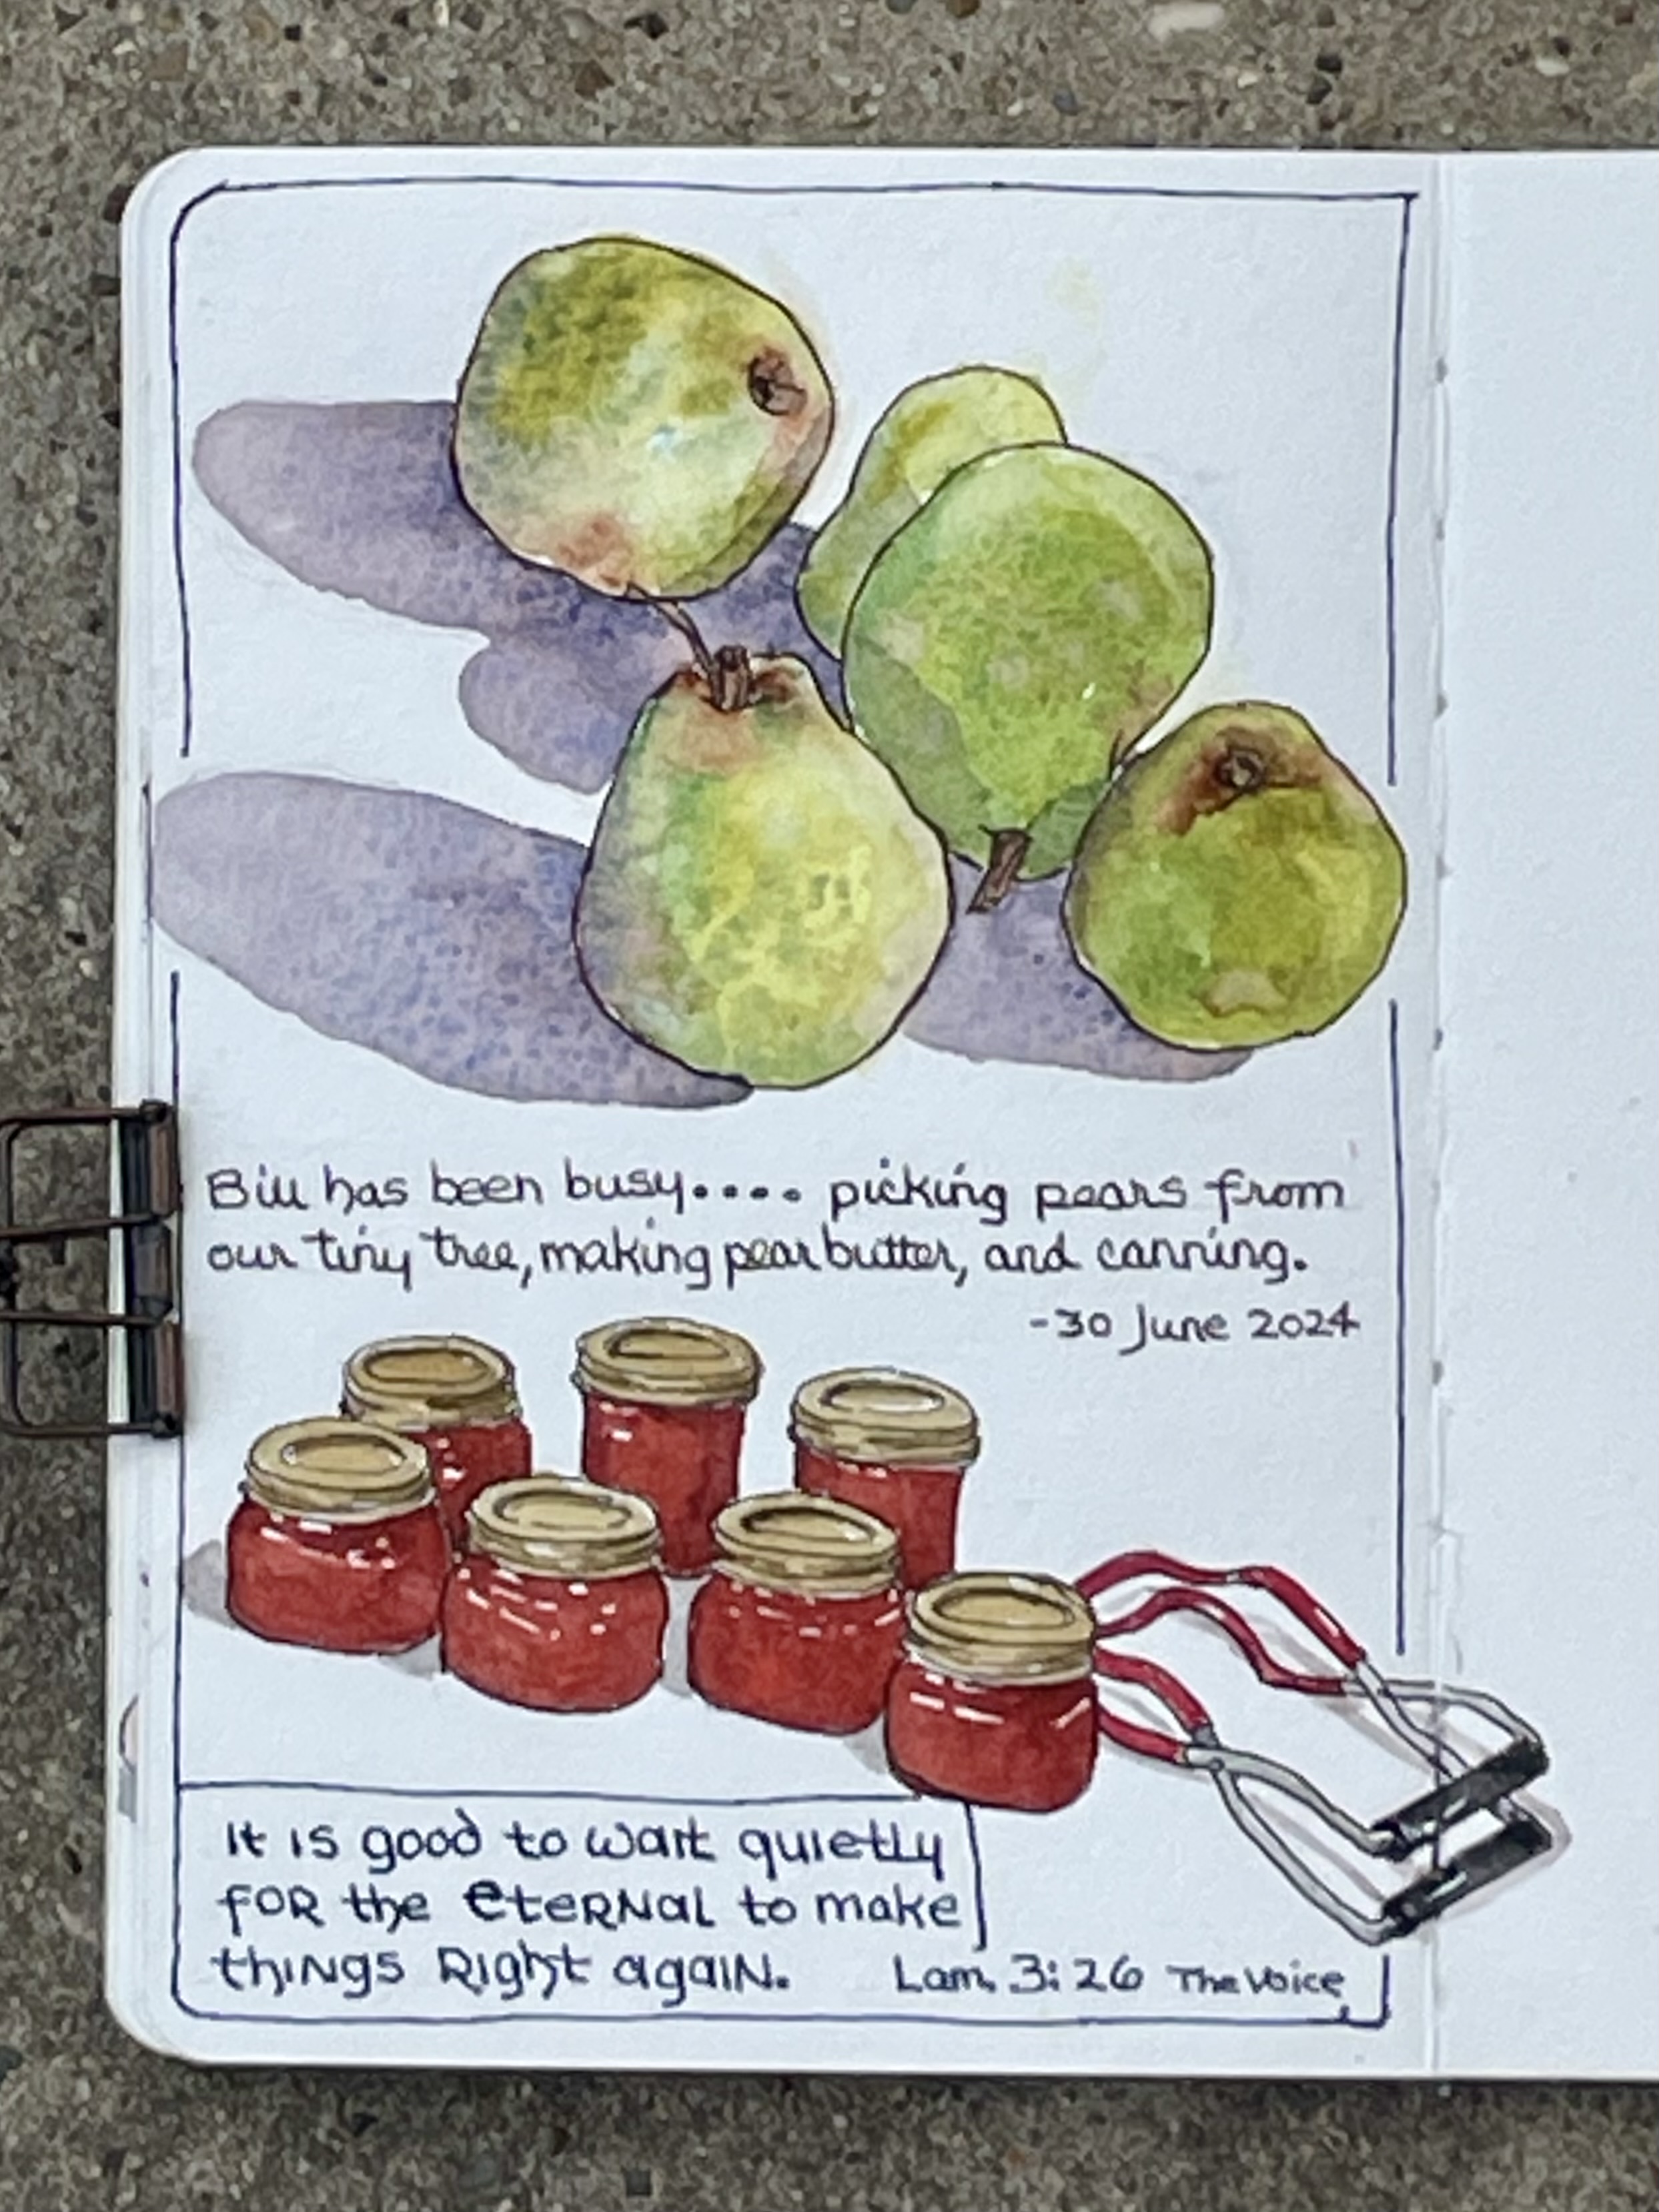 Bill has been busy.... picking pears from
our tiny tree, making pear butter, and canning.
-30 June 2024
It is good to wait quietly
for the eternal to make
things right again.
Lam. 3:26 The Voice